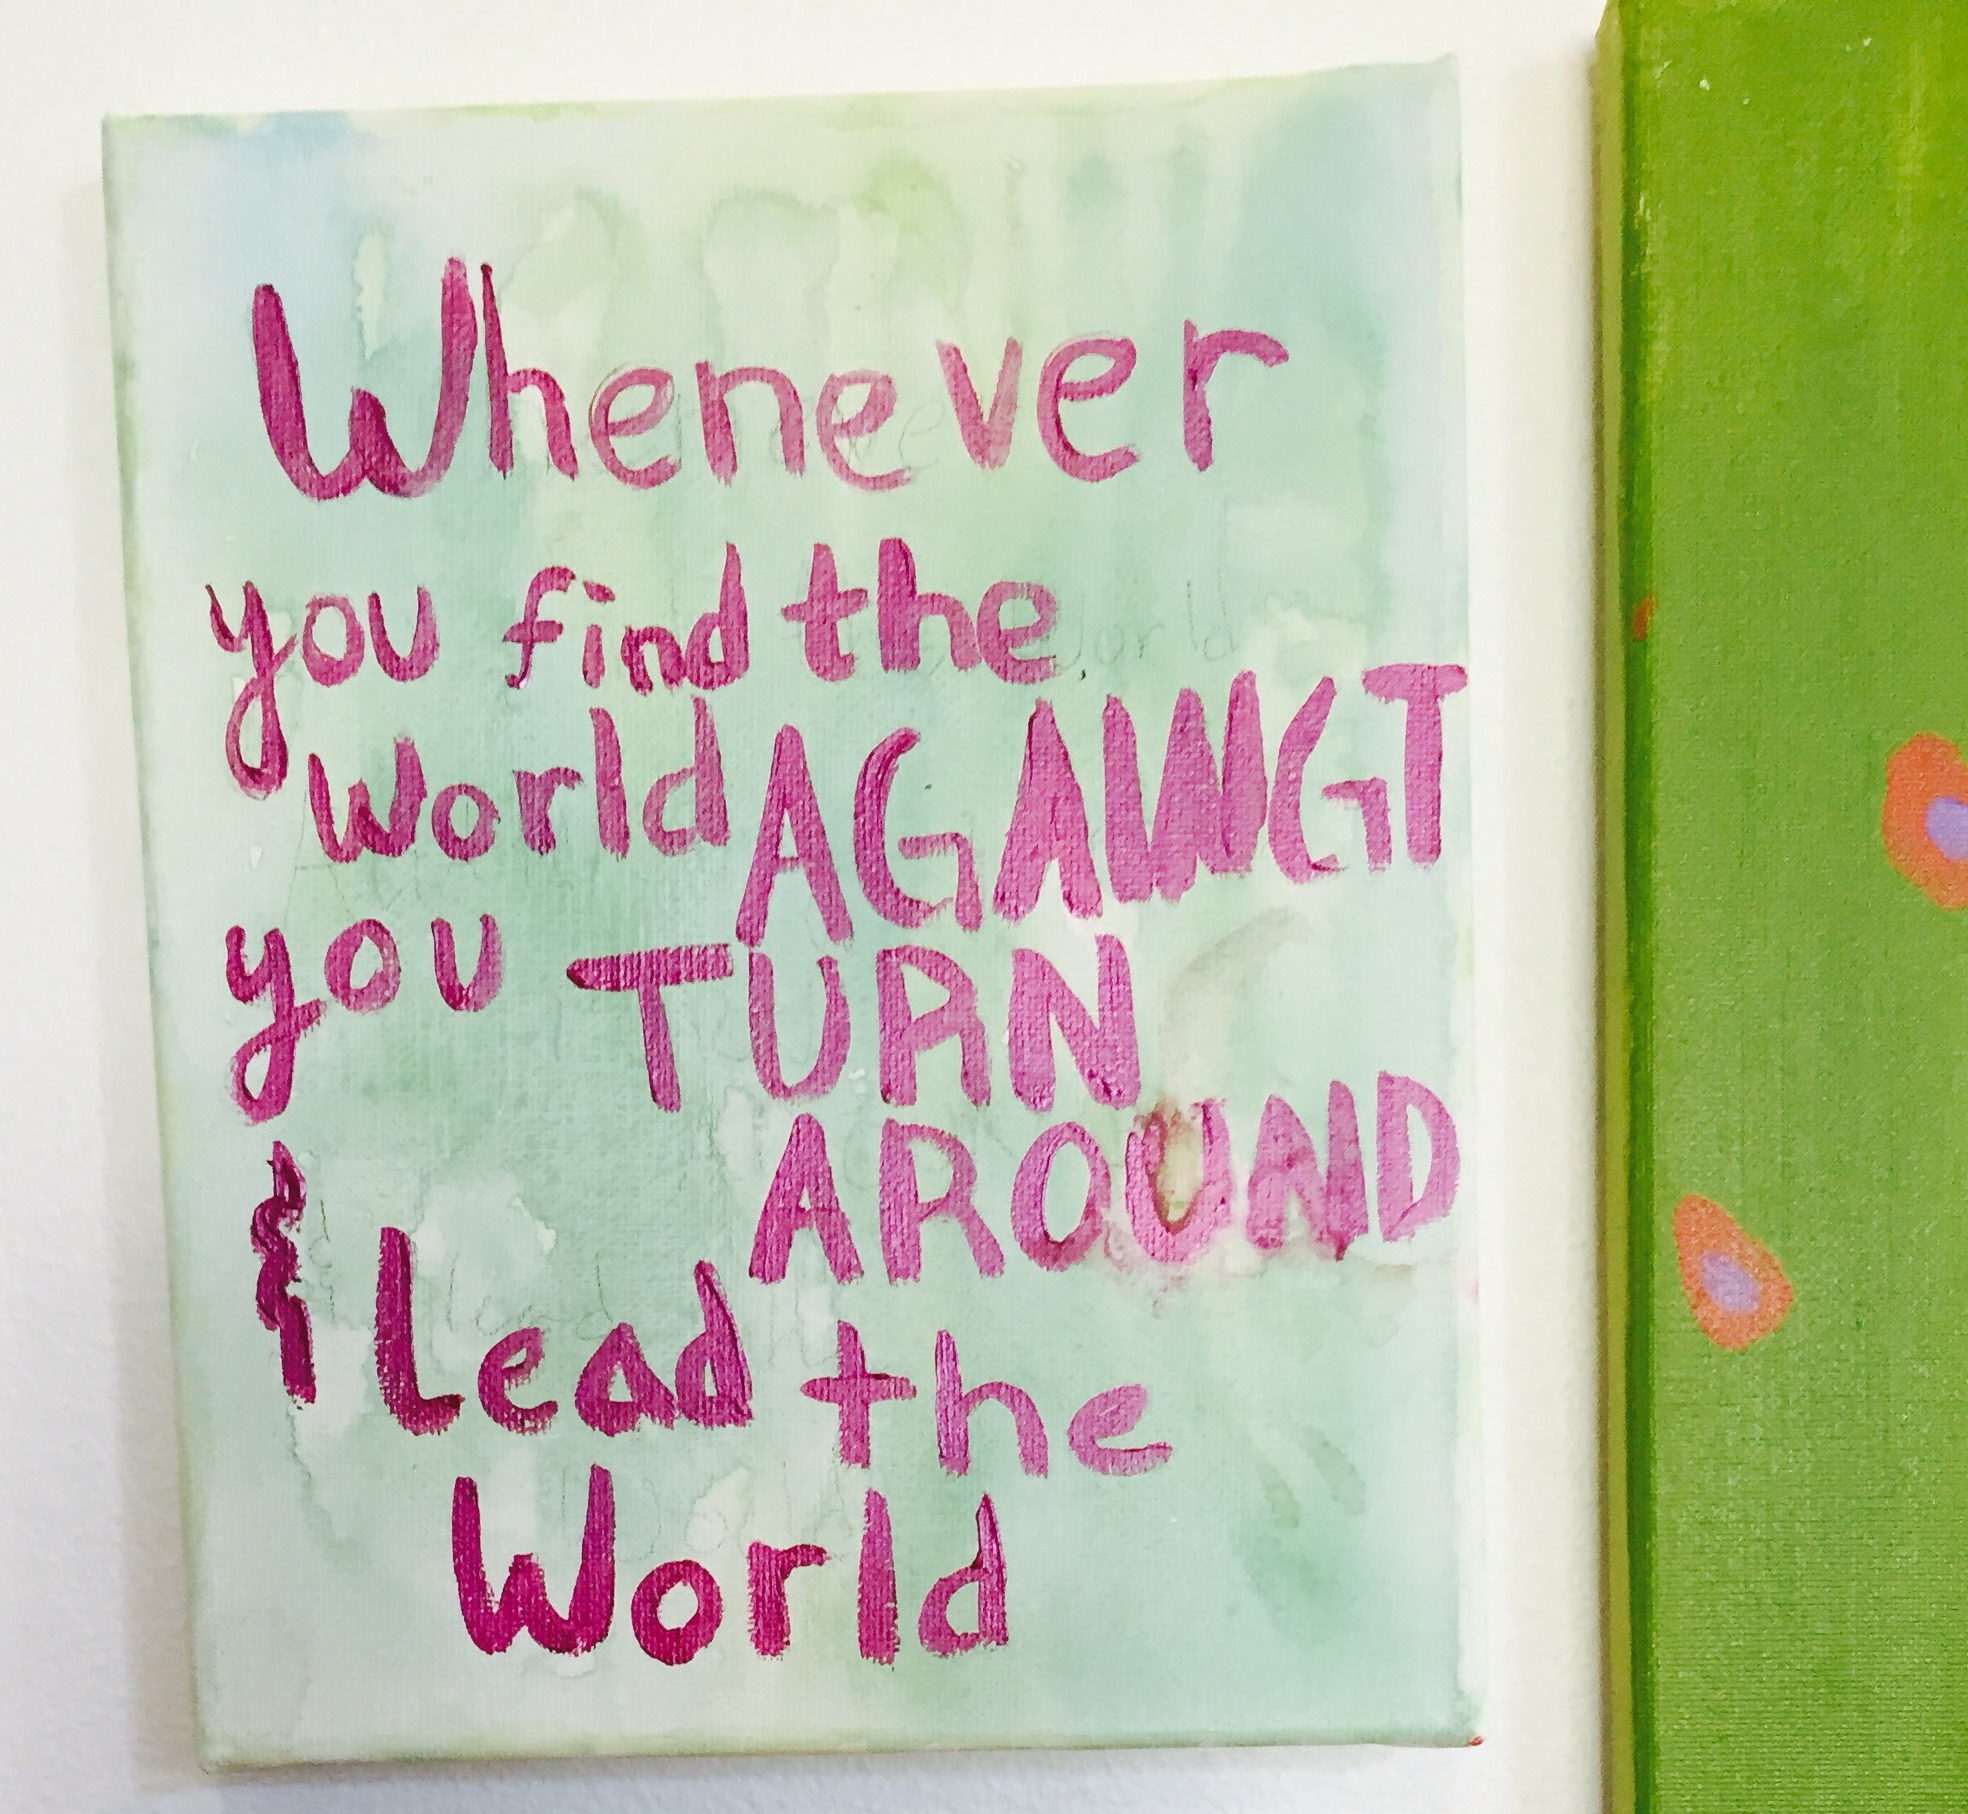 Whenever
you find the
World AGAINST
you TURN
AROUND
& Lead the
World